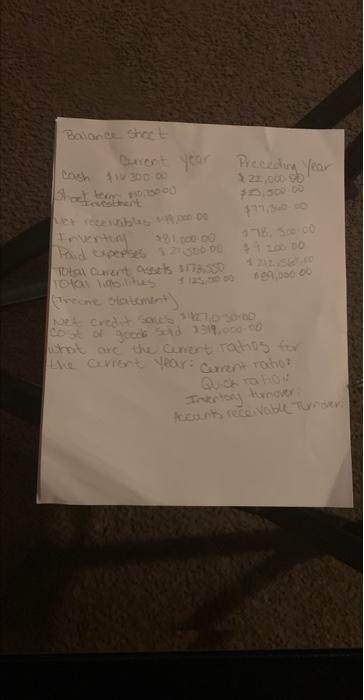 Balance Sheet
Current Year Preceding Year
Cash $ 300.00 $22,000.00
Short term Investment $23,500.00
Net receivables 9,000.00 $77,360.00
Inventory $81,000.00 $78, 500.00
Paid expenses $ 500.00 $9,200.00
Total Current assets $178,550
Total liabilities $ 125, $89,000.00
(Income Statement)
Net Credit Sales
Cost of goods Sold $319,000.00
what are the Current ratios for
the Current Year: Current ratio:
Quick ratio:
Inventory turnover:
Accounts receivable Turnover: